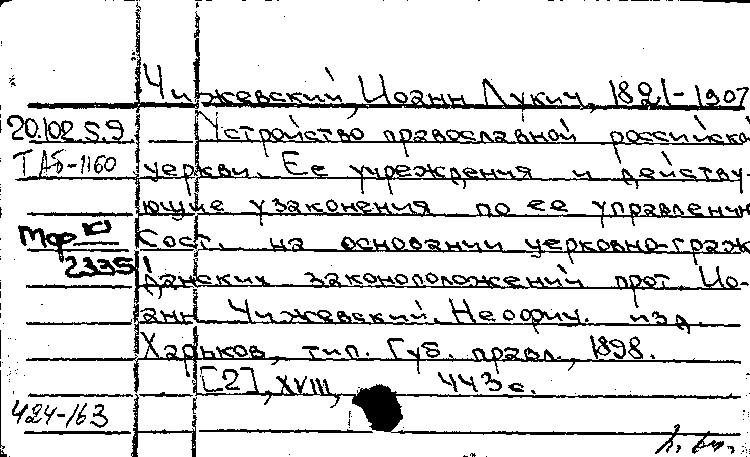 Чижевский, Иоанн Лукич, 1821-1907
20.102.5.9 Устройство православной российско
ТАб-1160 церкви. Ее учреждения и действу-
ющие узаконения по ее управлению
Мфр К Сост. на основании церковно-граж
2335 данских законоположений прот. Ио-
анн Чижевский. Неофиц. изд.
Харьков, тип. Губ. правл., 1898.
[2], XVIII, 443 с.
424-163